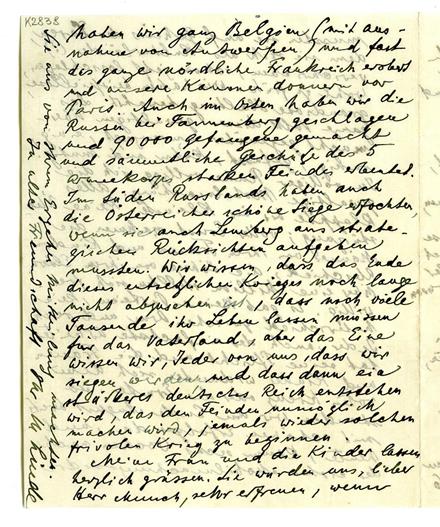 K2838
haben wir ganz Belgien (mit aus-
nahme von Antwerpen) und fast
das ganze nördliche Frankreich erobert
und unsere Kanonen donnern vor
Paris. Auch im Osten haben wir die
Russen bei Tannenberg geschlagen
und 90000 Gefangene gemacht
und sämmtliche Geschütze des 5
Armeekorps starken Feindes erbeutet.
Im Süden Russlands haben auch
die Österreicher schöne Siege erfochten,
wenn sie auch Lemberg aus strate-
gischen Rücksichten aufgeben
mussten. Wir wissen, dass das Ende
dieses entsetzlichen Krieges noch lange
nicht abzusehen ist, dass noch viele
Tausende ihr Leben lassen müssen
für das Vaterland, aber das Eine
wissen wir, Jeder von uns, dass wir
siegen werden und dass dann ein
stärkeres deutsches Reich entstehen
wird, das den Feinden unmöglich
machen wird, jemals wieder solchen
frivolen Krieg zu beginnen.
Meine Frau und die Kinder lassen
herzlich grüssen. Sie würden uns, lieber
Herr Munch, sehr erfreuen, wenn
Sie uns von Ihrem Ergehen Mitteilung machten.
In alter Freundschaft Ihr M Linde